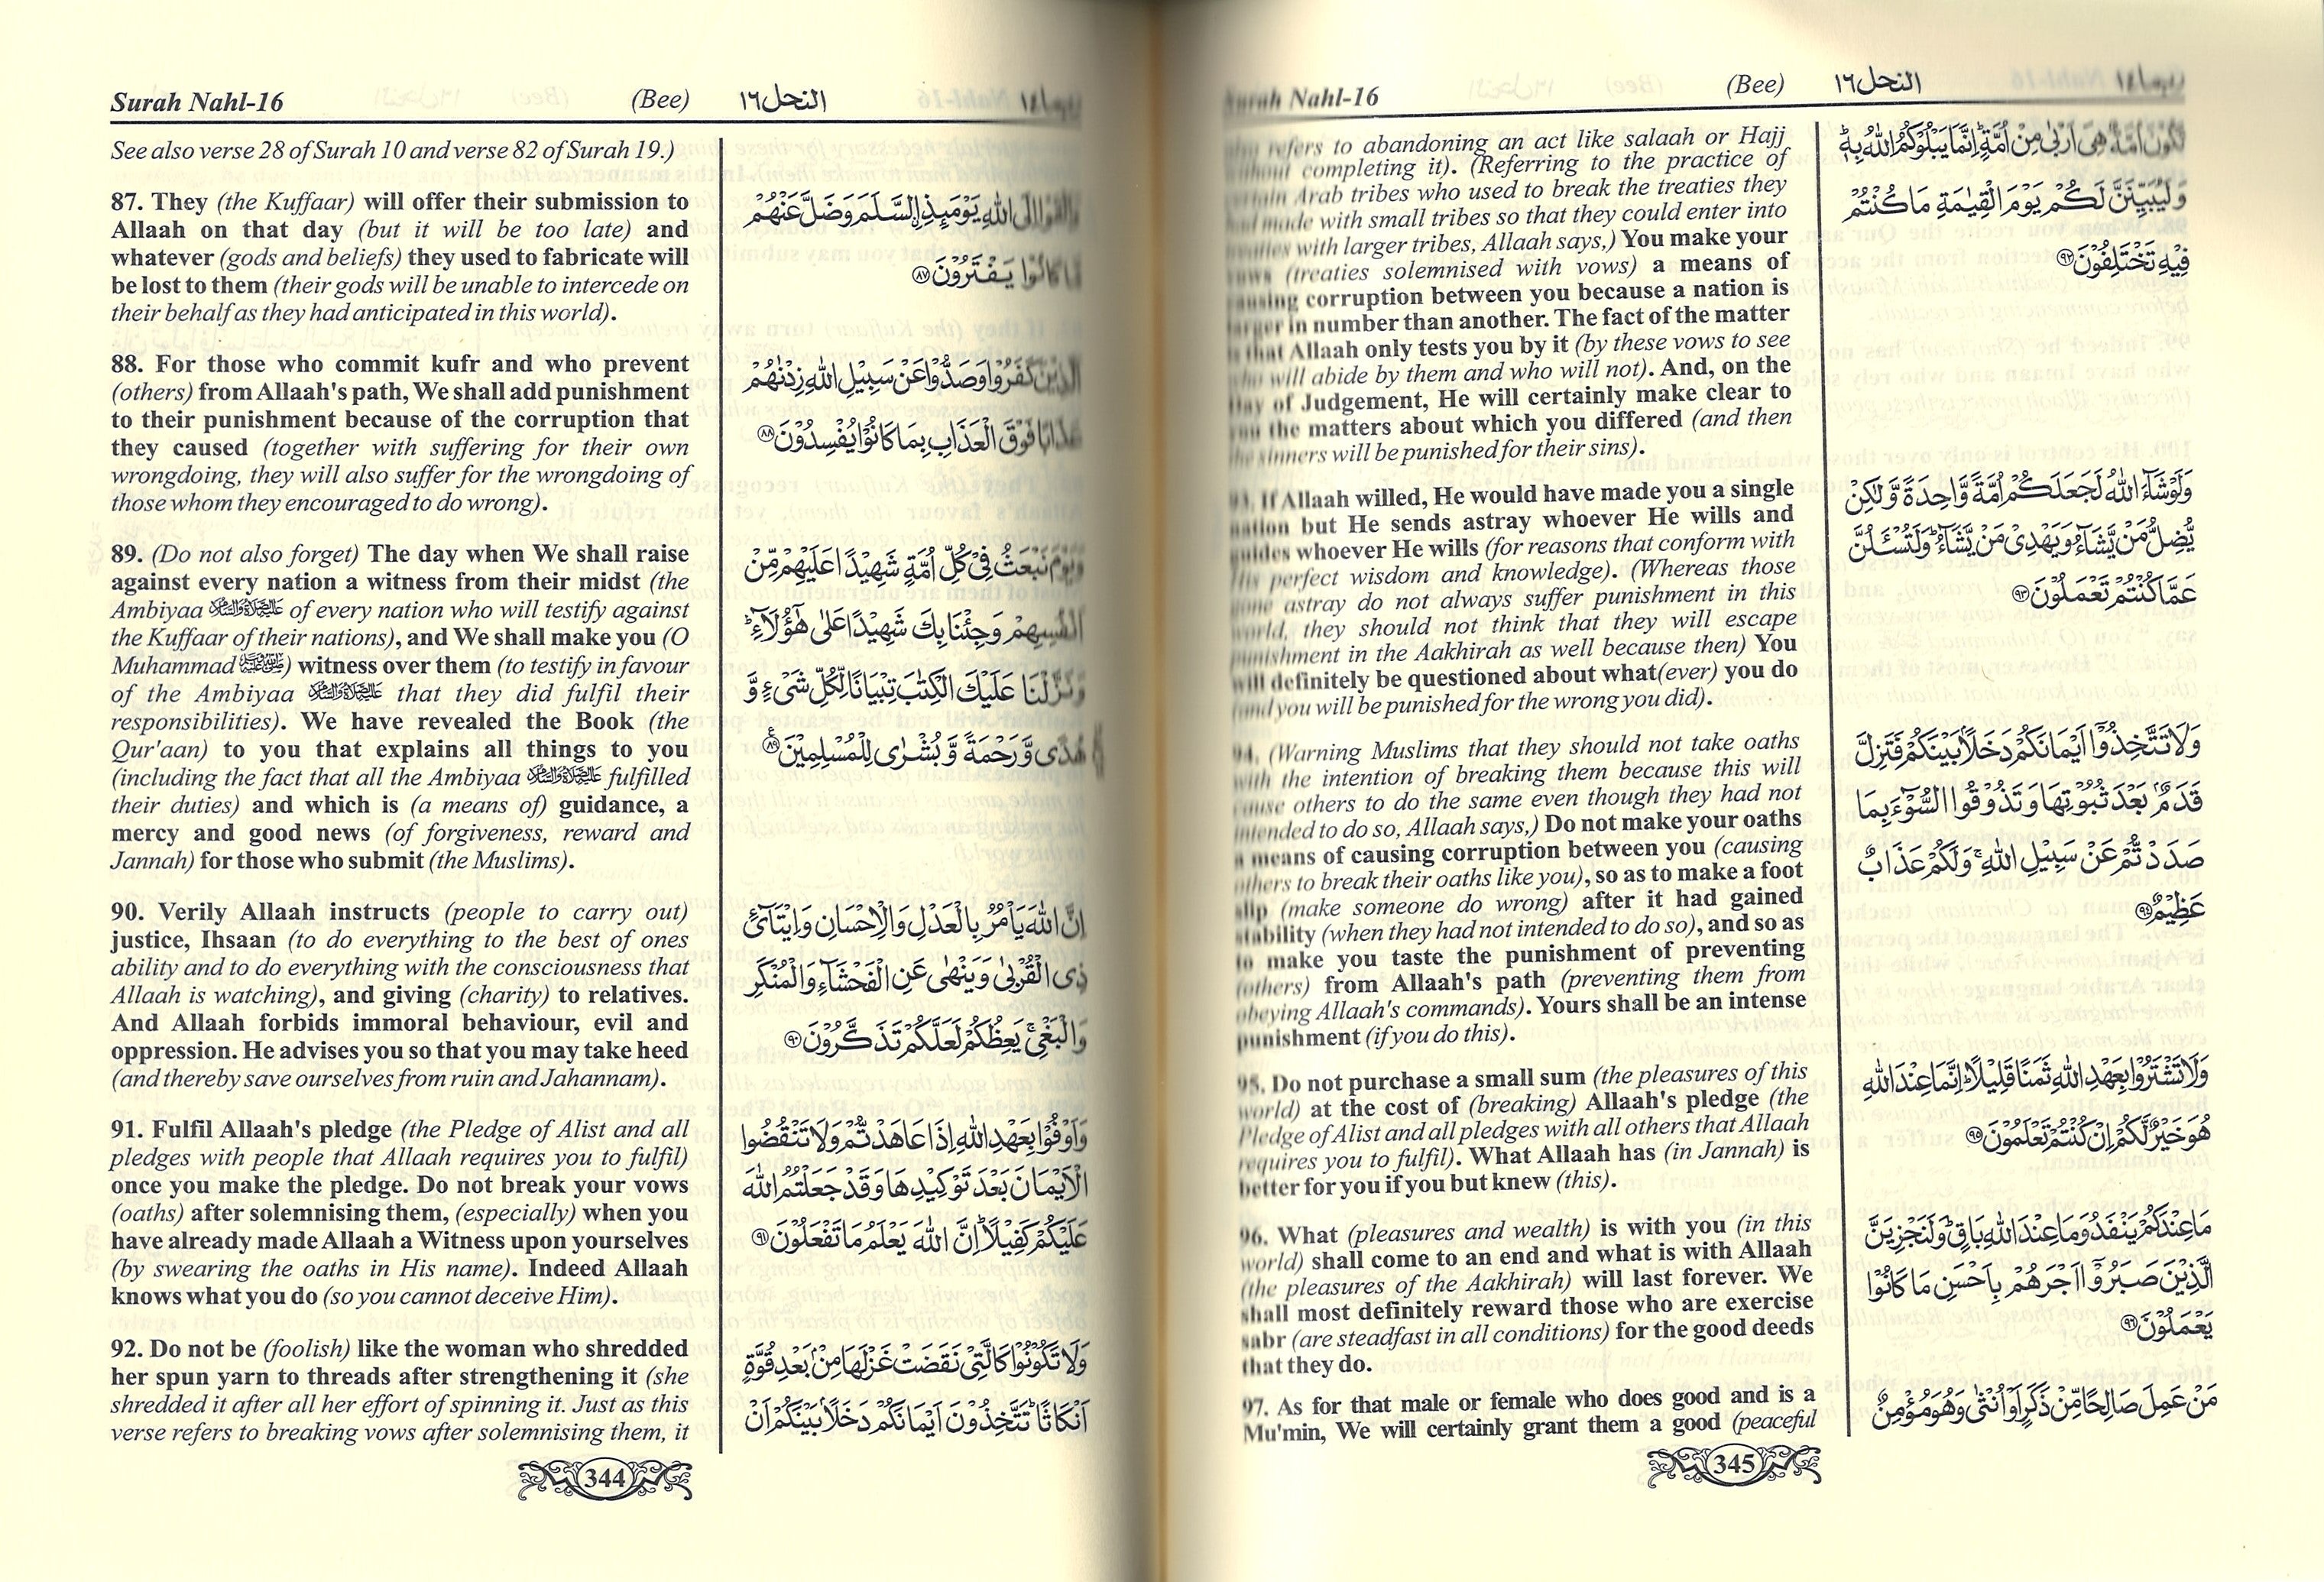 Surah Nahl-16 (Bee) النحل ١٦
See also verse 28 of Surah 10 and verse 82 of Surah 19.)
87. They (the Kuffaar) will offer their submission to
Allaah on that day (but it will be too late) and
whatever (gods and beliefs) they used to fabricate will
be lost to them (their gods will be unable to intercede on
their behalf as they had anticipated in this world).
88. For those who commit kufr and who prevent
(others) from Allaah's path, We shall add punishment
to their punishment because of the corruption that
they caused (together with suffering for their own
wrongdoing, they will also suffer for the wrongdoing of
those whom they encouraged to do wrong).
89. (Do not also forget) The day when We shall raise
against every nation a witness from their midst (the
Ambiyaa of every nation who will testify against
the Kuffaar of their nations), and We shall make you (O
Muhammad ﷺ) witness over them (to testify in favour
of the Ambiyaa that they did fulfil their
responsibilities). We have revealed the Book (the
Qur'aan) to you that explains all things to you
(including the fact that all the Ambiyaa fulfilled
their duties) and which is (a means of) guidance, a
mercy and good news (of forgiveness, reward and
Jannah) for those who submit (the Muslims).
90. Verily Allaah instructs (people to carry out)
justice, Ihsaan (to do everything to the best of ones
ability and to do everything with the consciousness that
Allaah is watching), and giving (charity) to relatives.
And Allaah forbids immoral behaviour, evil and
oppression. He advises you so that you may take heed
(and thereby save ourselves from ruin and Jahannam).
91. Fulfil Allaah's pledge (the Pledge of Alist and all
pledges with people that Allaah requires you to fulfil)
once you make the pledge. Do not break your vows
(oaths) after solemnising them, (especially) when you
have already made Allaah a Witness upon yourselves
(by swearing the oaths in His name). Indeed Allaah
knows what you do (so you cannot deceive Him).
92. Do not be (foolish) like the woman who shredded
her spun yarn to threads after strengthening it (she
shredded it after all her effort of spinning it. Just as this
verse refers to breaking vows after solemnising them, it
وَاَلْقَوْا اِلَى اللّٰهِ يَوْمَىِٕذِ اِ۟لسَّلَمَ وَضَلَّ عَنْهُمْ
مَّا كَانُوْا يَفْتَرُوْنَ ﴿٨٧﴾
اَلَّذِيْنَ كَفَرُوْا وَصَدُّوْا عَنْ سَبِيْلِ اللّٰهِ زِدْنٰهُمْ
عَذَابًا فَوْقَ الْعَذَابِ بِمَا كَانُوْا يُفْسِدُوْنَ ﴿٨٨﴾
وَيَوْمَ نَبْعَثُ فِيْ كُلِّ اُمَّةٍ شَهِيْدًا عَلَيْهِمْ مِّنْ
اَنْفُسِهِمْ وَجِئْنَا بِكَ شَهِيْدًا عَلٰى هٰٓؤُلَآءِ ؕ
وَنَزَّلْنَا عَلَيْكَ الْكِتٰبَ تِبْيَانًا لِّكُلِّ شَيْءٍ وَّ
هُدًى وَّرَحْمَةً وَّبُشْرٰى لِلْمُسْلِمِيْنَ ﴿٨٩﴾
اِنَّ اللّٰهَ يَاْمُرُ بِالْعَدْلِ وَالْاِحْسَانِ وَاِيْتَآئِ
ذِى الْقُرْبٰى وَيَنْهٰى عَنِ الْفَحْشَآءِ وَالْمُنْكَرِ
وَالْبَغْيِ ۚ يَعِظُكُمْ لَعَلَّكُمْ تَذَكَّرُوْنَ ﴿٩٠﴾
وَاَوْفُوْا بِعَهْدِ اللّٰهِ اِذَا عَاهَدْتُّمْ وَلَا تَنْقُضُوا
الْاَيْمَانَ بَعْدَ تَوْكِيْدِهَا وَقَدْ جَعَلْتُمُ اللّٰهَ
عَلَيْكُمْ كَفِيْلًا ؕ اِنَّ اللّٰهَ يَعْلَمُ مَا تَفْعَلُوْنَ ﴿٩١﴾
وَلَا تَكُوْنُوْا كَالَّتِيْ نَقَضَتْ غَزْلَهَا مِنْۢ بَعْدِ قُوَّةٍ
اَنْكَاثًا ؕ تَتَّخِذُوْنَ اَيْمَانَكُمْ دَخَلًۢا بَيْنَكُمْ اَنْ
344
Surah Nahl-16 (Bee) النحل ١٦
also refers to abandoning an act like salaah or Hajj
without completing it). (Referring to the practice of
certain Arab tribes who used to break the treaties they
had made with small tribes so that they could enter into
treaties with larger tribes, Allaah says,) You make your
vows (treaties solemnised with vows) a means of
causing corruption between you because a nation is
larger in number than another. The fact of the matter
is that Allaah only tests you by it (by these vows to see
who will abide by them and who will not). And, on the
Day of Judgement, He will certainly make clear to
you the matters about which you differed (and then
the sinners will be punished for their sins).
93. If Allaah willed, He would have made you a single
nation but He sends astray whoever He wills and
guides whoever He wills (for reasons that conform with
His perfect wisdom and knowledge). (Whereas those
gone astray do not always suffer punishment in this
world, they should not think that they will escape
punishment in the Aakhirah as well because then) You
will definitely be questioned about what(ever) you do
(and you will be punished for the wrong you did).
94. (Warning Muslims that they should not take oaths
with the intention of breaking them because this will
cause others to do the same even though they had not
intended to do so, Allaah says,) Do not make your oaths
a means of causing corruption between you (causing
others to break their oaths like you), so as to make a foot
slip (make someone do wrong) after it had gained
stability (when they had not intended to do so), and so as
to make you taste the punishment of preventing
(others) from Allaah's path (preventing them from
obeying Allaah's commands). Yours shall be an intense
punishment (if you do this).
95. Do not purchase a small sum (the pleasures of this
world) at the cost of (breaking) Allaah's pledge (the
Pledge of Alist and all pledges with all others that Allaah
requires you to fulfil). What Allaah has (in Jannah) is
better for you if you but knew (this).
96. What (pleasures and wealth) is with you (in this
world) shall come to an end and what is with Allaah
(the pleasures of the Aakhirah) will last forever. We
shall most definitely reward those who are exercise
sabr (are steadfast in all conditions) for the good deeds
that they do.
97. As for that male or female who does good and is a
Mu'min, We will certainly grant them a good (peaceful
تَكُوْنَ اُمَّةٌ هِيَ اَرْبٰى مِنْ اُمَّةٍ ؕ اِنَّمَا يَبْلُوْكُمُ اللّٰهُ بِهٖ ؕ
وَلَيُبَيِّنَنَّ لَكُمْ يَوْمَ الْقِيٰمَةِ مَا كُنْتُمْ
فِيْهِ تَخْتَلِفُوْنَ ﴿٩٢﴾
وَلَوْ شَآءَ اللّٰهُ لَجَعَلَكُمْ اُمَّةً وَّاحِدَةً وَّلٰكِنْ
يُّضِلُّ مَنْ يَّشَآءُ وَيَهْدِيْ مَنْ يَّشَآءُ ؕ وَلَتُسْـَٔلُنَّ
عَمَّا كُنْتُمْ تَعْمَلُوْنَ ﴿٩٣﴾
وَلَا تَتَّخِذُوْٓا اَيْمَانَكُمْ دَخَلًۢا بَيْنَكُمْ فَتَزِلَّ
قَدَمٌۢ بَعْدَ ثُبُوْتِهَا وَتَذُوْقُوا السُّوْٓءَ بِمَا
صَدَدْتُّمْ عَنْ سَبِيْلِ اللّٰهِ ۚ وَلَكُمْ عَذَابٌ
عَظِيْمٌ ﴿٩٤﴾
وَلَا تَشْتَرُوْا بِعَهْدِ اللّٰهِ ثَمَنًا قَلِيْلًا ؕ اِنَّمَا عِنْدَ اللّٰهِ
هُوَ خَيْرٌ لَّكُمْ اِنْ كُنْتُمْ تَعْلَمُوْنَ ﴿٩٥﴾
مَا عِنْدَكُمْ يَنْفَدُ وَمَا عِنْدَ اللّٰهِ بَاقٍ ؕ وَلَنَجْزِيَنَّ
الَّذِيْنَ صَبَرُوْٓا اَجْرَهُمْ بِاَحْسَنِ مَا كَانُوْا
يَعْمَلُوْنَ ﴿٩٦﴾
مَنْ عَمِلَ صَالِحًا مِّنْ ذَكَرٍ اَوْ اُنْثٰى وَهُوَ مُؤْمِنٌ
345